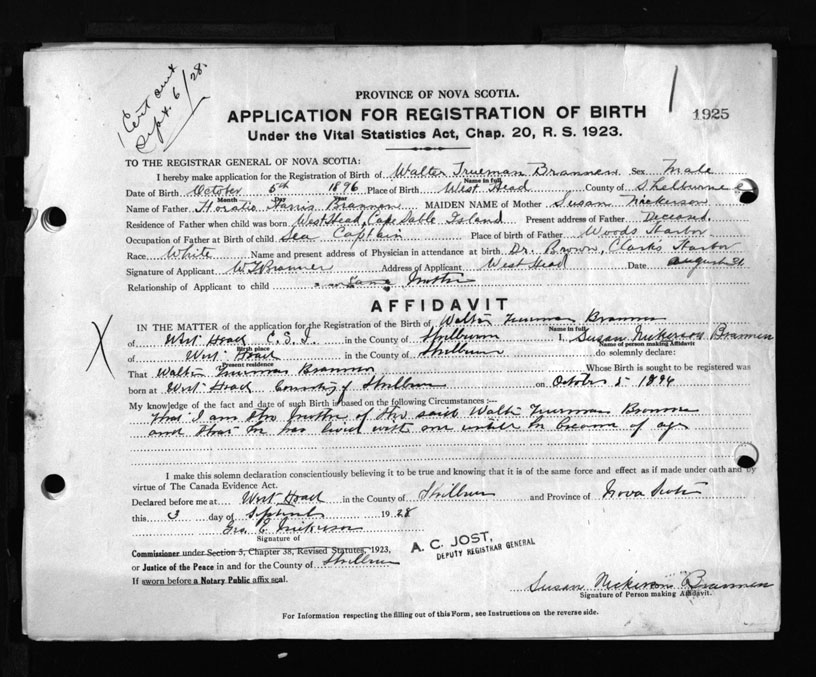 1 Cert out
Sept. 6/28.
PROVINCE OF NOVA SCOTIA.
APPLICATION FOR REGISTRATION OF BIRTH
1925
Under the Vital Statistics Act, Chap. 20, R. S. 1923.
TO THE REGISTRAR GENERAL OF NOVA SCOTIA:
I hereby make application for the Registration of Birth of Walter Trueman Brannen Sex Male
Name in full
Date of Birth October 5th 1896 Place of Birth West Head County of Shelburne
Month Day Year
Name of Father Horatio Harris Brannen MAIDEN NAME of Mother Susan Nickerson
Residence of Father when child was born West Head, Cape Sable Island Present address of Father Deceased
Occupation of Father at Birth of child Sea Captain Place of birth of Father Woods Harbor
Race White Name and present address of Physician in attendance at birth Dr. Brown, Clarks Harbor
Signature of Applicant W T Brannen Address of Applicant West Head Date August 21
Relationship of Applicant to child Mother
AFFIDAVIT
IN THE MATTER of the application for the Registration of the Birth of Walter Trueman Brannen
Name in full
of West Head C. S. I. in the County of Shelburne I, Susan Nickerson Brannen
Birth place Name of person making Affidavit
of West Head in the County of Shelburne do solemnly declare:
Present residence
That Walter Trueman Brannen Whose Birth is sought to be registered was
born at West Head County of Shelburne on October 5 1896
My knowledge of the fact and date of such Birth is based on the following Circumstances :—
That I am the mother of the said Walter Trueman Brannen
and that he has lived with me until he became of age
I make this solemn declaration conscientiously believing it to be true and knowing that it is of the same force and effect as if made under oath and by
virtue of The Canada Evidence Act.
Declared before me at West Head in the County of Shelburne and Province of Nova Scotia
this 3 day of September 1928
Geo. E. Nickerson
Signature of
Commissioner under Section 5, Chapter 38, Revised Statutes, 1923,
or Justice of the Peace in and for the County of Shelburne
If sworn before a Notary Public affix seal.
A. C. JOST,
DEPUTY REGISTRAR GENERAL
Susan Nickerson Brannen
Signature of Person making Affidavit.
For Information respecting the filling out of this Form, see Instructions on the reverse side.